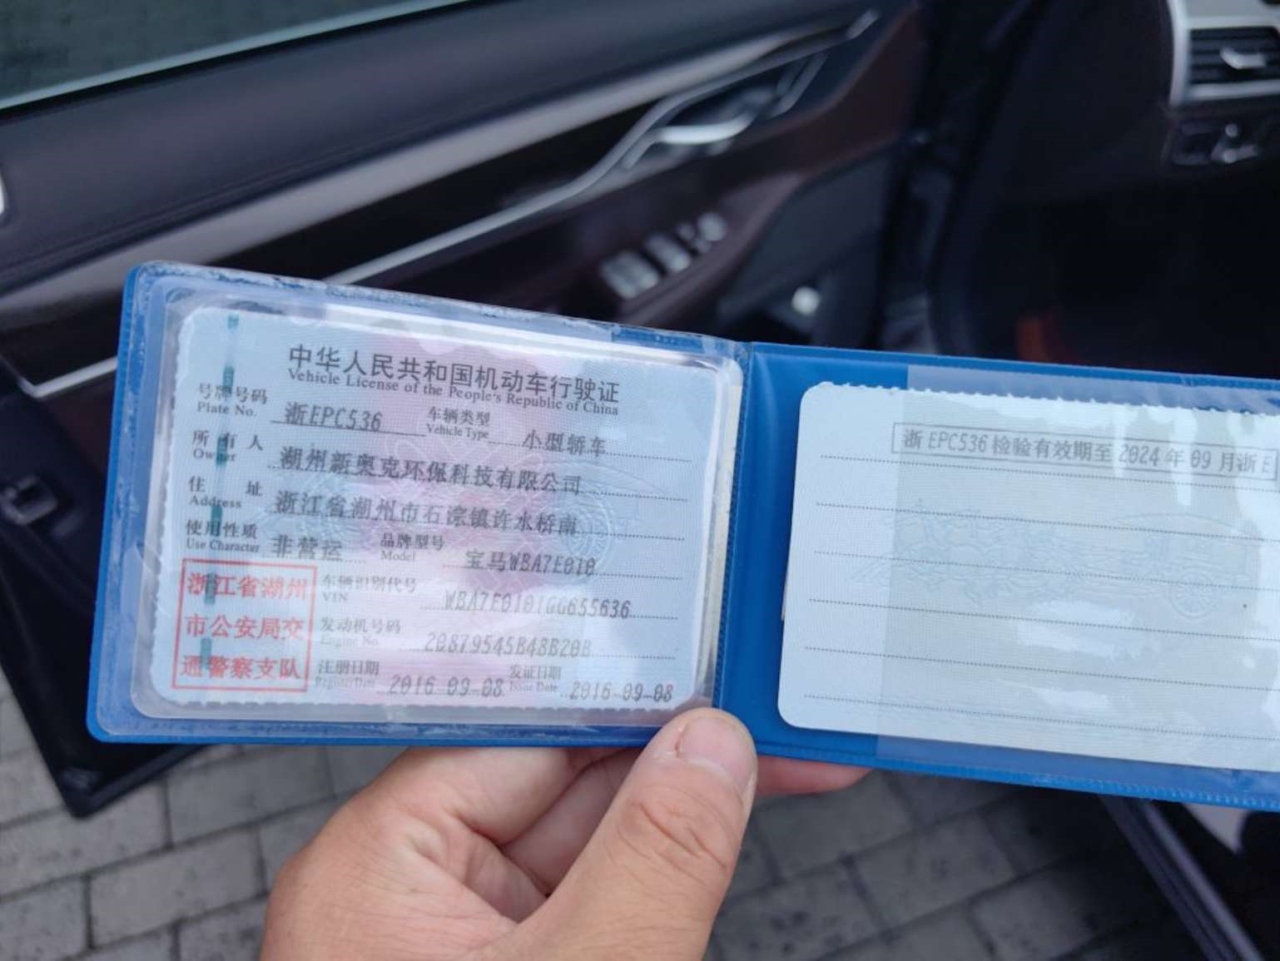 中华人民共和国机动车行驶证
Vehicle License of the People's Republic of China
号牌号码 浙EPC536 车辆类型 小型轿车
Plate No. Vehicle Type
所有人 湖州新奥克环保科技有限公司
Owner
住址 浙江省湖州市石淙镇许水桥南
Address
使用性质 非营运 品牌型号 宝马WBA7E010
Use Character Model
浙江省湖州
市公安局交
通警察支队
车辆识别代号 WBA7E0101GG655636
VIN
发动机号码 20879545B48B20B
Engine No.
注册日期 2016-09-08 发证日期 2016-09-08
Register Date Issue Date
浙EPC536检验有效期至2024年09月浙E